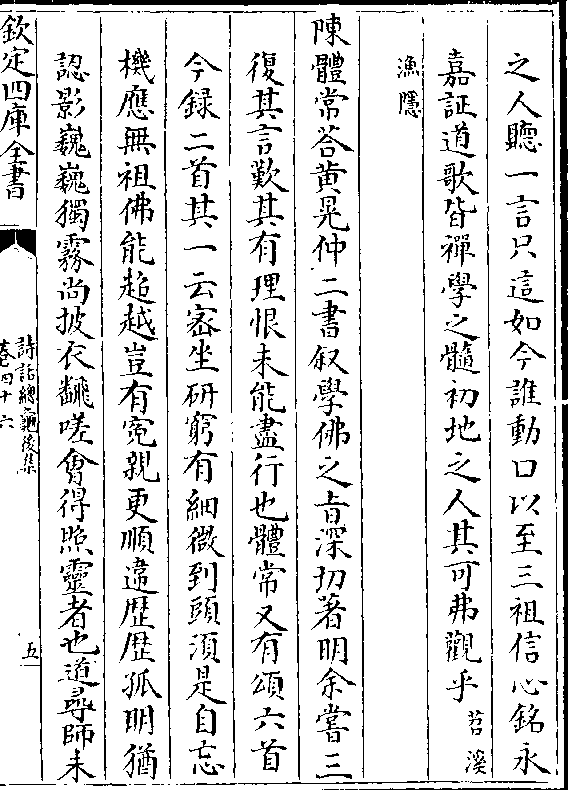 之人聽一言只這如今誰動口以至三祖信心銘永
嘉証道歌皆禪學之髓初地之人其可弗觀乎苕溪
漁隱
陳體常答黄晃仲二書叙學佛之旨深切著明余嘗三
復其言歎其有理恨未能盡行也體常又有頌六首
今録二首其一云宻坐研窮有細微到頭須是自忘
機應無祖佛能超越豈有寃親更順違歴歴孤明猶
認影巍巍獨露尚披衣飜嗟會得照靈者也道尋師未
欽定四庫全書
詩話總龜後集
卷四十六
五